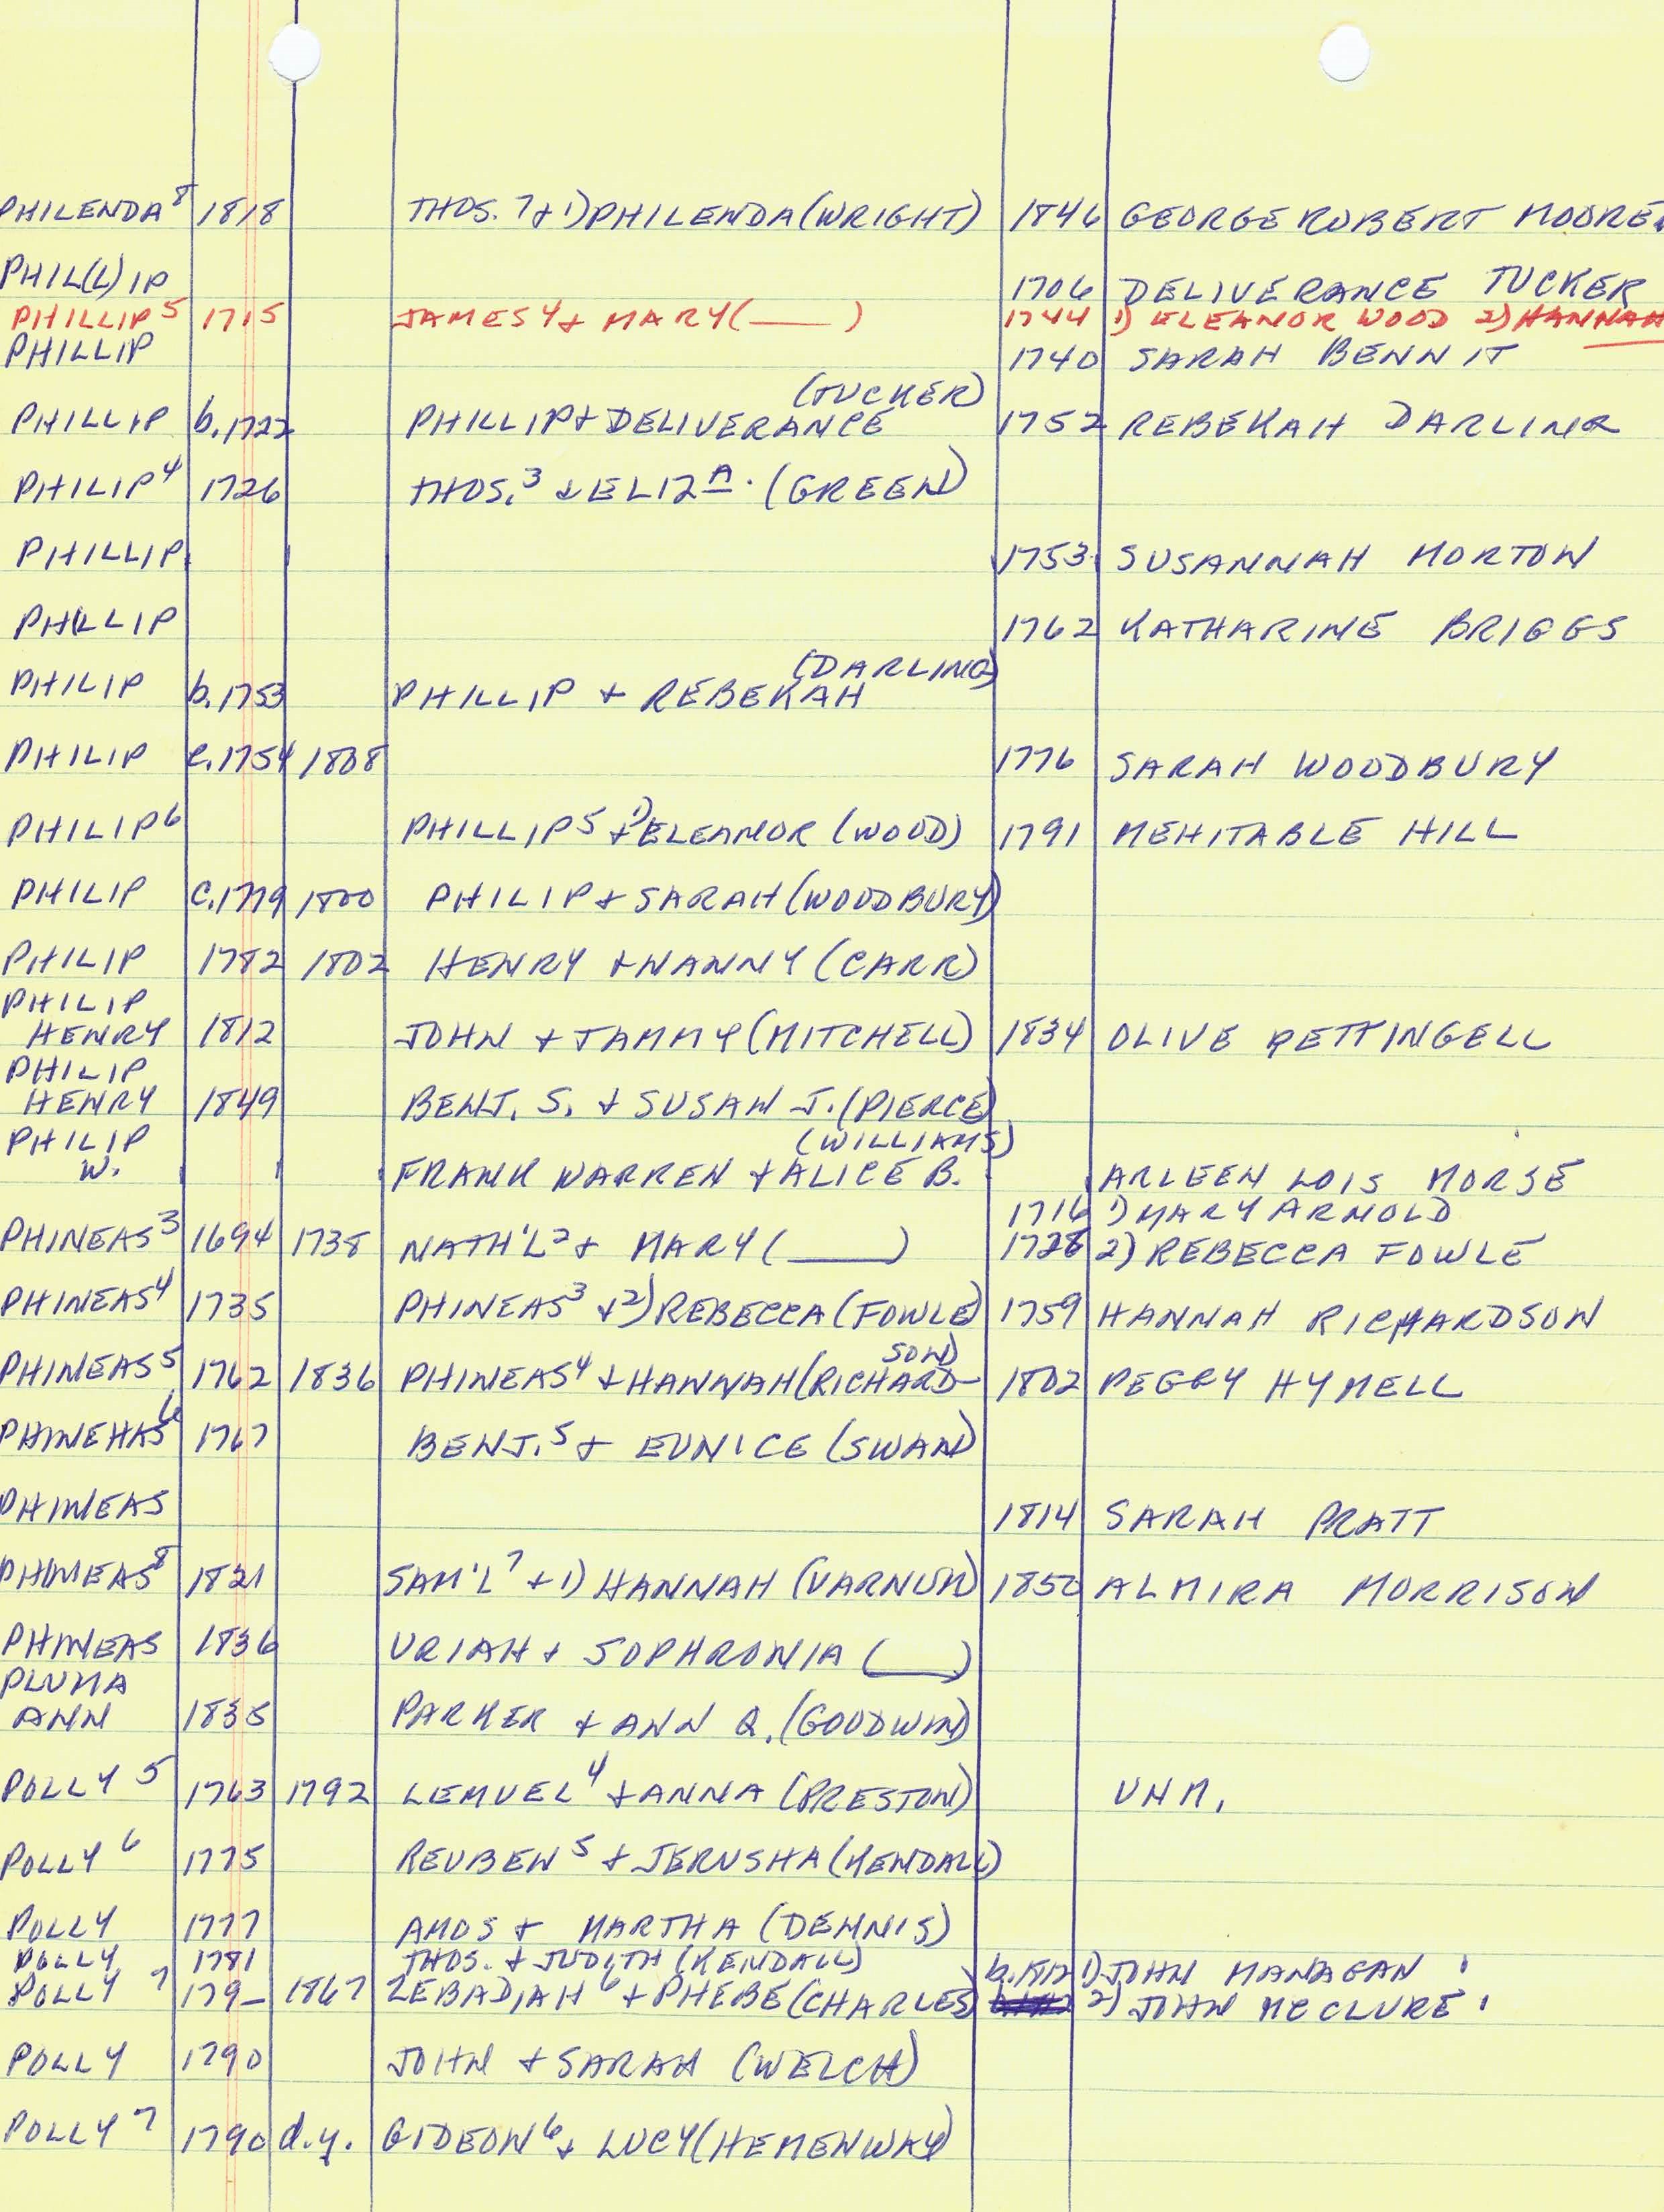 PHILENDA⁸ 1818 THOS.⁷ + 1) PHILENDA (WRIGHT) 1846 GEORGE ROBERT MOORE
PHIL(L)IP 1706 DELIVERANCE TUCKER
PHILLIP⁵ 1715 JAMES⁴ + MARY (___) 1744 1) ELEANOR WOOD 2) HANNAH
PHILLIP 1740 SARAH BENNIT
(TUCKER)
PHILLIP b.1722 PHILLIP + DELIVERANCE 1752 REBEKAH DARLING
PHILIP⁴ 1726 THOS.³ + ELIZA. (GREEN)
PHILLIP 1753 SUSANNAH MORTON
PHILLIP 1762 KATHARINE BRIGGS
(DARLING)
PHILIP b.1753 PHILLIP + REBEKAH
PHILIP c.1754 1808 1776 SARAH WOODBURY
PHILIP⁶ PHILLIP⁵ + 1) ELEANOR (WOOD) 1791 MEHITABLE HILL
PHILIP c.1779 1800 PHILIP + SARAH (WOODBURY)
PHILIP 1782 1802 HENRY + NANNY (CARR)
PHILIP
HENRY 1812 JOHN + TAMMY (MITCHELL) 1834 OLIVE PETTINGELL
PHILIP
HENRY 1849 BENJ. S. + SUSAN J. (PIERCE)
PHILIP (WILLIAMS)
W. FRANK WARREN + ALICE B. ARLEEN LOIS MORSE
1716 1) MARY ARNOLD
PHINEAS³ 1694 1738 NATH'L² + MARY (___) 1728 2) REBECCA FOWLE
PHINEAS⁴ 1735 PHINEAS³ + 2) REBECCA (FOWLE) 1759 HANNAH RICHARDSON
SON)
PHINEAS⁵ 1762 1836 PHINEAS⁴ + HANNAH (RICHARD- 1802 PEGGY HYMELL
PHINEHAS⁶ 1767 BENJ.⁵ + EUNICE (SWAN)
PHINEAS 1814 SARAH PRATT
PHINEAS⁸ 1821 SAM'L⁷ + 1) HANNAH (VARNUM) 1850 ALMIRA MORRISON
PHINEAS 1836 URIAH + SOPHRONIA (___)
PLUMA
ANN 1835 PARKER + ANN Q. (GOODWIN)
POLLY⁵ 1763 1792 LEMUEL⁴ + ANNA (PRESTON) UNM.
POLLY⁶ 1775 REUBEN⁵ + JERUSHA (KENDALL)
POLLY 1777 AMOS + MARTHA (DENNIS)
POLLY 1781 THOS. + JUDITH (KENDALL)
POLLY⁷ 179_ 1867 ZEBADIAH⁶ + PHEBE (CHARLES) 1) JOHN MANAGAN
2) JOHN MCCLURE
POLLY 1790 JOHN + SARAH (WELCH)
POLLY⁷ 1790 d.y. GIDEON⁶ + LUCY (HEMENWAY)